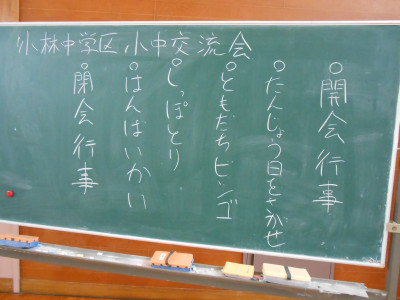 小林中学区小中交流会
○開会行事
○たんじょう日をさがせ
○ともだちビンゴ
○しっぽとり
○はんばいかい
○閉会行事